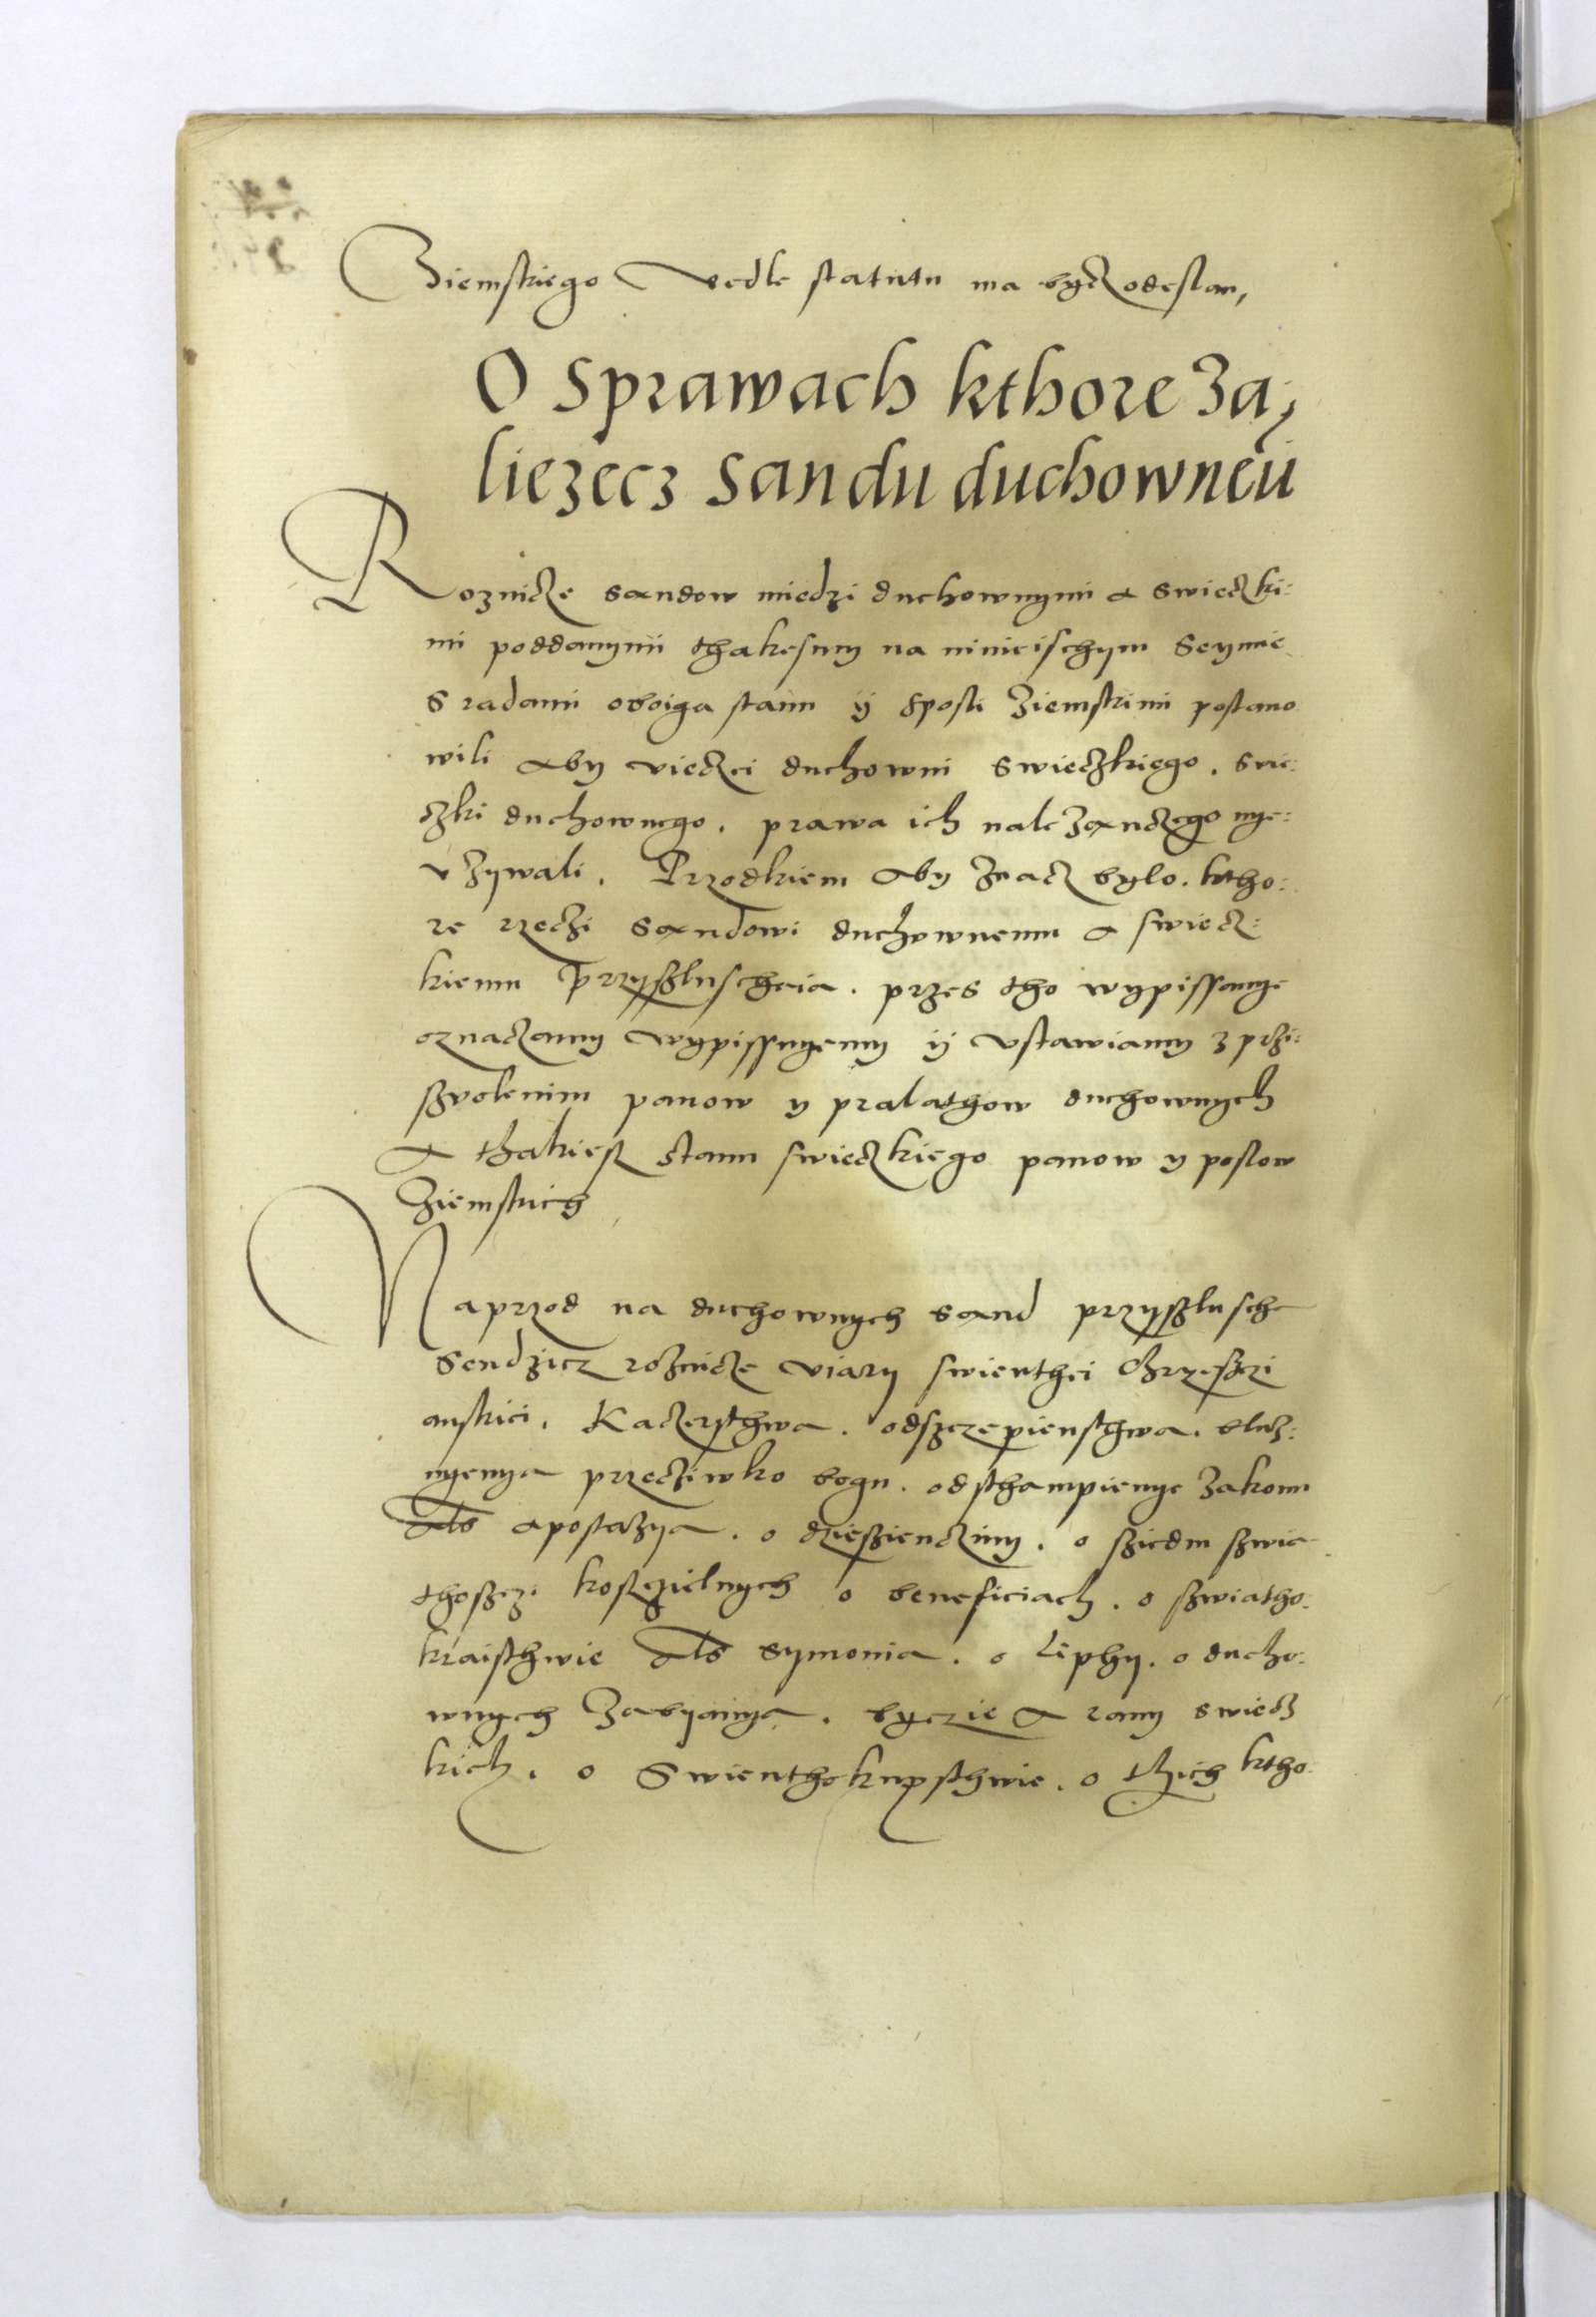 Ziemskiego Vedle statutu ma bycz odeslan,
O sprawach kthore Za,
liezecz sandu duchowneu
Roznicze sandow miedzi duchownymi a swieczki:
mi poddanymi thakesmy na ninieischym Seymie
s radami oboiga stanu ÿ sposli Ziemskimi postano
wili aby vieczei duchowni swieczkiego. swie:
czki duchownego. prawa ich nalezanczego nye:
vzywali. Przodkiem aby znacz bylo. ktho:
re rzeczi sandowi duchownemu a swiecz:
kiemu przyszluscheia. przes tho wypissanye
oznaczamy wypissuyemy ÿ vstawiamy z przi:
szvolenim panow y pralathow duchownych
a thakiesz stanu swieczkiego panow y poslow
Ziemskich
Naprzod na duchownych sand przyszlusche
sendzicz roznicze viary swienthei chrzesczi
anskiei. Kaczersthwa. odszczepiensthwa. bluz:
nyenya przecziwko bogu. odsthampienye Zakonu
als apostazya. o dziesziencziny. o sziedm szwia
thoszczi koszczielnych o beneficiach. o szwiatho:
kraisthwie als symonia. o Liphy. o ducho:
wnych Zabyanya. byczie a rany swiecz
kich. o Swienthokupsthwie. o thich ktho